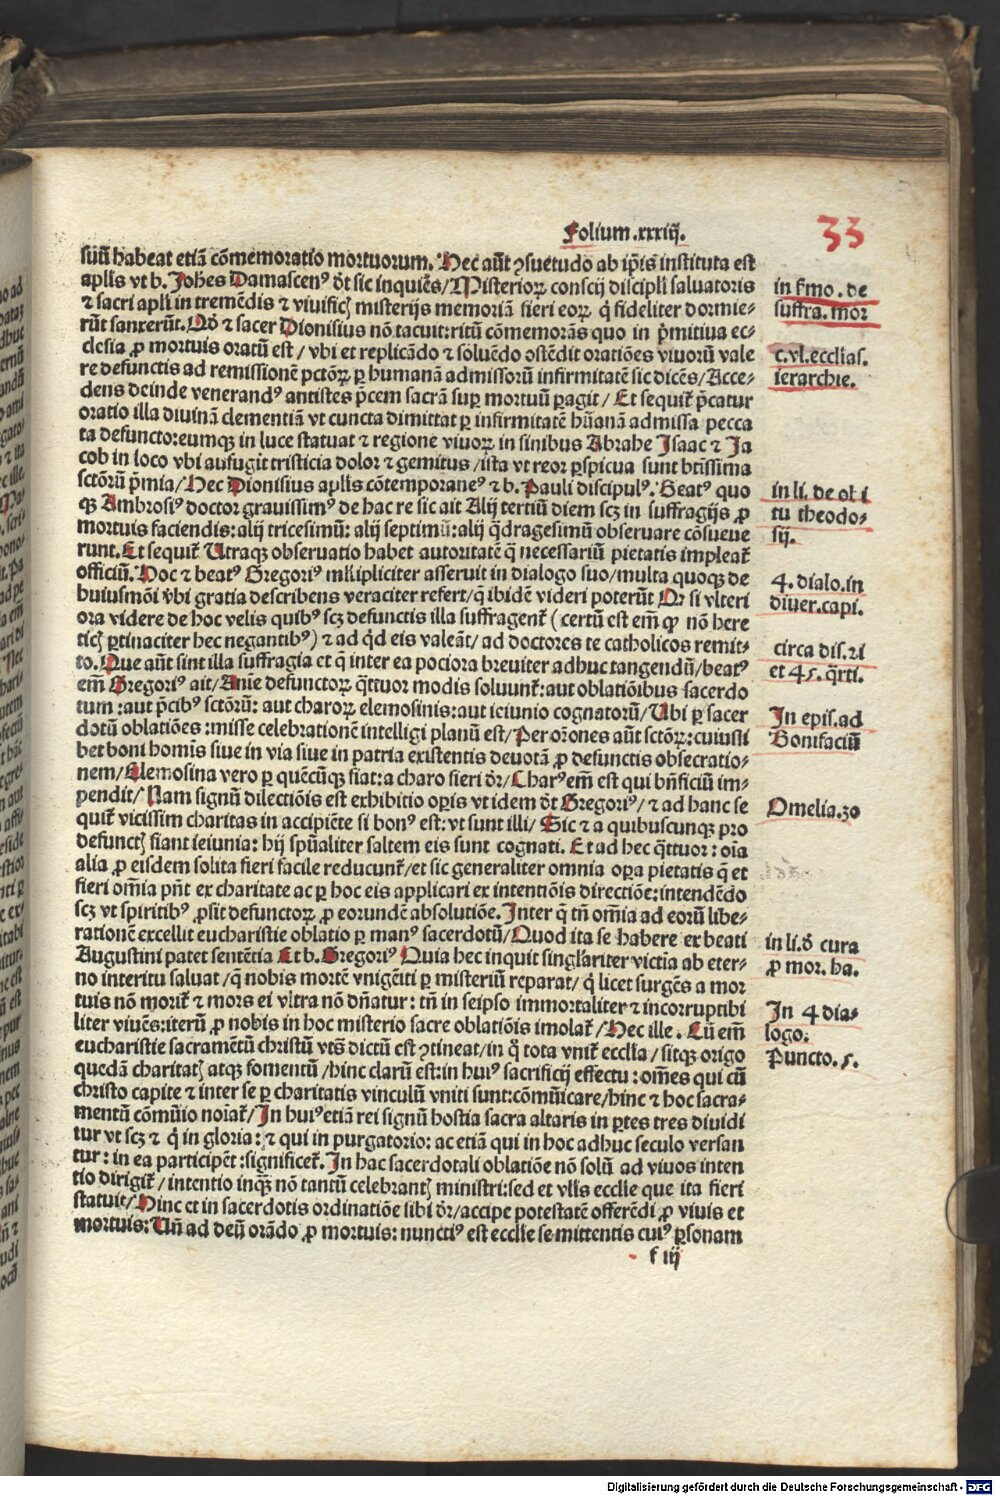 Folium .xxxiij.
33
suū habeat etiā cōmemoratio mortuorum. Hec aūt ꝯsuetudo ab ipīs instituta est
aplīs vt b. Johēs Damascenꝰ dt̄ sic inquiēs/Misterioꝝ conscij discipli saluatoris
⁊ sacri apli in tremēdis ⁊ viuificꝭ misterijs memoriā fieri eoꝝ q̇ fideliter dormie⸗
rūt sanxerūt. Qd̄ ⁊ sacer Dionisius nō tacuit: ritū cōmemorās quo in pͥmitiua ec⸗
clesia ꝓ mortuis oratū est/vbi et replicādo ⁊ soluēdo ostēdit oratiōes viuorū vale
re defunctis ad remissionē pctōꝝ ꝑ humanā admissorū infirmitatē sic dicēs/Acce⸗
dens deinde venerandꝰ antistes pcem sacrā suꝑ mortuū ꝑagit/Et sequit̄ pcatur
oratio illa diuinā clementiā vt cuncta dimittat ꝑ infirmitatē hūanā admissa pecca
ta defuncto: eumqꝫ in luce statuat ⁊ regione viuoꝝ in sinibus Abrahe Isaac ⁊ Ja
cob in loco vbi aufugit tristicia dolor ⁊ gemitus/ista vt reor ꝑspicua sunt btīssima
sctōrū pͥmia/Hec Dionisius aplīs cōtemporaneꝰ ⁊ b. Pauli discipulꝰ. Beatꝰ quo
qꝫ Ambrosiꝰ doctor grauissimꝰ de hac re sic ait Alij tertiū diem scꝫ in suffragijs ꝓ
mortuis faciendis: alij tricesimū: alij septimū: alij q̄dragesimū obseruare cōsueue
runt. Et sequit̄ Utraqꝫ obseruatio habet autoritatē q̄ necessariū pietatis impleat̄
officiū. Hoc ⁊ beatꝰ Gregoriꝰ mltipliciter asserit in dialogo suo/multa quoqꝫ de
huiusmōi vbi gratia describens veraciter refert/q̄ ibidē videri poterūt Qꝫ si vlteri
ora videre de hoc velis quibꝰ scꝫ defunctis illa suffragent̄ (certū est em̄ qꝫ nō here
ticꝭ ꝑtinaciter hec negantibꝰ) ⁊ ad qd eis valeāt/ad doctores te catholicos remit⸗
to. Que aūt sint illa suffragia et q̄ inter ea pociora breuiter adhuc tangendū/beatꝰ
em̄ Gregoriꝰ ait/Anīe defunctoꝝ q̄ttuor modis soluunt̄: aut oblatiōibus sacerdo
tum: aut pcibꝰ sctōrū: aut charoꝝ elemosinis: aut ieiunio cognatorū/Ubi ꝑ sacer
dotū oblatiōes: misse celebrationē intelligi planū est/Per orōnes aūt sctōꝝ: cuiusli
bet boni homīs siue in via siue in patria existentis deuotā ꝓ defunctis obsecratio⸗
nem/Elemosina vero ꝑ quēcūqꝫ fiat: a charo fieri dr̄/Charꝰ em̄ est qui bn̄ficiū im⸗
pendit/Nam signū dilectiōis est exhibitio opīs vt idem dt̄ Gregoriꝰ/⁊ ad hanc se
quit̄ vicissim charitas in accipiēte si bonꝰ est: vt sunt illi/Sic ⁊ a quibuscunqꝫ pro
defunctꝭ fiant ieiunia: hij spūaliter saltem eis sunt cognati. Et ad hec q̄ttuor: oīa
alia ꝓ eisdem solita fieri facile reducunt̄/et sic generaliter omnia oꝑa pietatis q̄ et
fieri om̄ia pn̄t ex charitate ac ꝑ hoc eis applicari ex intentiōis directiōe: intendēdo
scꝫ vt spiritibꝰ ꝓsit defunctoꝝ ꝓ eorundē absolutiōe. Inter q̄ tn̄ om̄ia ad eorū libe⸗
rationē excellit eucharistie oblatio ꝑ manꝰ sacerdotū/Quod ita se habere ex beati
Augustini patet sentētia Et b. Gregoriꝰ Quia hec inquit singlariter victīa ab eter⸗
no interitu saluat/q̄ nobis mortē vnigēiti ꝑ misteriū reparat/q̇ licet surgēs a mor
tuis nō morit̄ ⁊ mors ei vltra nō dn̄atur: tn̄ in seipso immortaliter ⁊ incorruptibi
liter viuēs: iterū ꝓ nobis in hoc misterio sacre oblatiōis imolat̄/Hec ille. Cū em̄
eucharistie sacramētū christū vtꝭ dictū est ꝯtineat/in q̊ tota vnit̄ ecclīa/sitqꝫ origo
quedā charitatꝭ atqꝫ fomentū/hinc clarū est: in huiꝰ sacrificij effectu: om̄es qui cū
christo capite ⁊ inter se ꝑ charitatis vinculū vniti sunt: cōmūicare/hinc ⁊ hoc sacra⸗
mentū cōmūio noīat̄/In huiꝰ etiā rei signū hostia sacra altaris in ꝑtes tres diuidi
tur vt scꝫ ⁊ q̇ in gloria: ⁊ qui in purgatorio: ac etiā qui in hoc adhuc seculo versan
tur: in ea participēt: significet̄. In hac sacerdotali oblatiōe nō solū ad viuos inten
tio dirigit̄/intentio inqꝫ nō tantū celebrantꝭ ministri: sed et vlīs ecclīe que ita fieri
statuit/Hinc et in sacerdotis ordinatiōe sibi dr̄/accipe potestatē offerēdi ꝓ viuis et
mortuis: Un̄ ad deū orādo ꝓ mortuis: nunctiꝰ est ecclīe se mittentis cuiꝰ ꝑsonam
f iij
in s̄mo. de
suffra. mor
c. vl. ecclias.
ierarchie.
in li. de obi
tu theodo⸗
sij.
4. dialo. in
diuer. capi.
circa dis. 21
et 45. q̄rti.
In epis. ad
Bonifaciū
Omelia. 30
in li. d̄ cura
ꝓ mor. ha.
In 4 dia⸗
logo.
Puncto. 5.
Digitalisierung gefördert durch die Deutsche Forschungsgemeinschaft - DFG